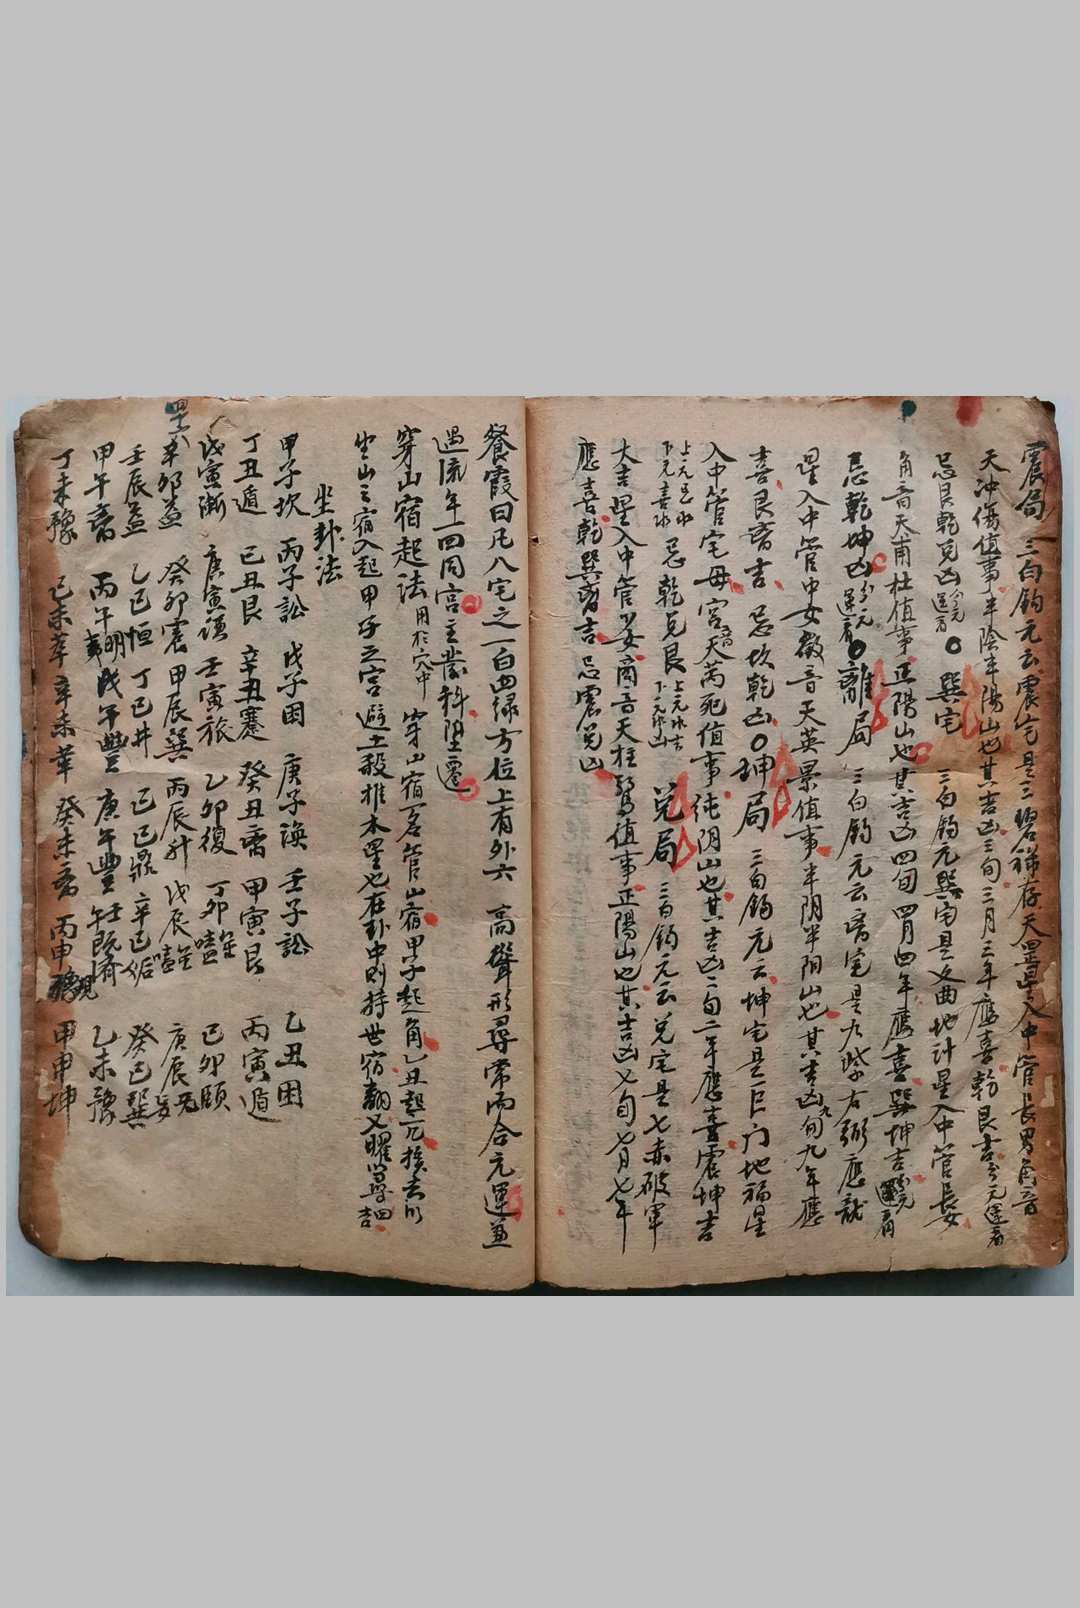 震局 三白鈎元云震宅是三碧祿存天罡星入中管長男角音
天冲傷值事半陰半陽山也其吉凶三旬三月三年應喜乾艮吉分元運看
忌艮乾兌凶分元運看〇巽宅 三白鈎元巽宅是文曲地計星入中管長女
角音天甫杜值事正陽山也其吉凶四旬四月四年應喜巽坤吉分元運看
忌乾坤凶分元運看〇離局 三白鈎元云离宅是九紫右弼應龍
星入中管中女徵音天英景值事半阴半阳山也其吉凶九旬九年應
喜艮离吉忌坎乾凶〇坤局 三白鈎元云坤宅是巨门地福星
入中管宅母宮音天芮死值事纯阴山也其吉凶二旬二年應喜震坤吉
忌乾兌艮 兌局 三白鈎元云兌宅是七赤破軍
大吉星入中管少女商音天柱驚值事正陽山也其吉凶七旬七月七年
應喜乾巽离吉忌震兌凶
餐霞曰凡八宅之一白四绿方位上有外六 高聳形尋常而合元運並
遇流年一四同宮主發科坚遷
穿山宿起法用於穴中 穿山宿一名管山宿甲子起角乙丑起亢挨去以
坐山之宿入起甲子之宮避土殺推木星也在卦中則持世宿翻七曜尋四吉
坐卦法
甲子坎 丙子訟 戊子困 庚子渙 壬子訟 乙丑困
丁丑遁 己丑艮 辛丑蹇 癸丑离 甲寅艮 丙寅遁
戊寅漸 庚寅谦 壬寅旅 乙卯復 丁卯噬 己卯頤
辛卯益 癸卯震 甲辰巽 丙辰升 戊辰噬 庚辰
壬辰益 乙巳恒 丁巳井 己巳鼎 辛巳姤 癸巳巽
甲午离 丙午明夷 戊午豐 庚午豐 壬午既濟 乙未豫
丁未豫 己未萃 辛未萃 癸未否 丙申觀 甲申坤